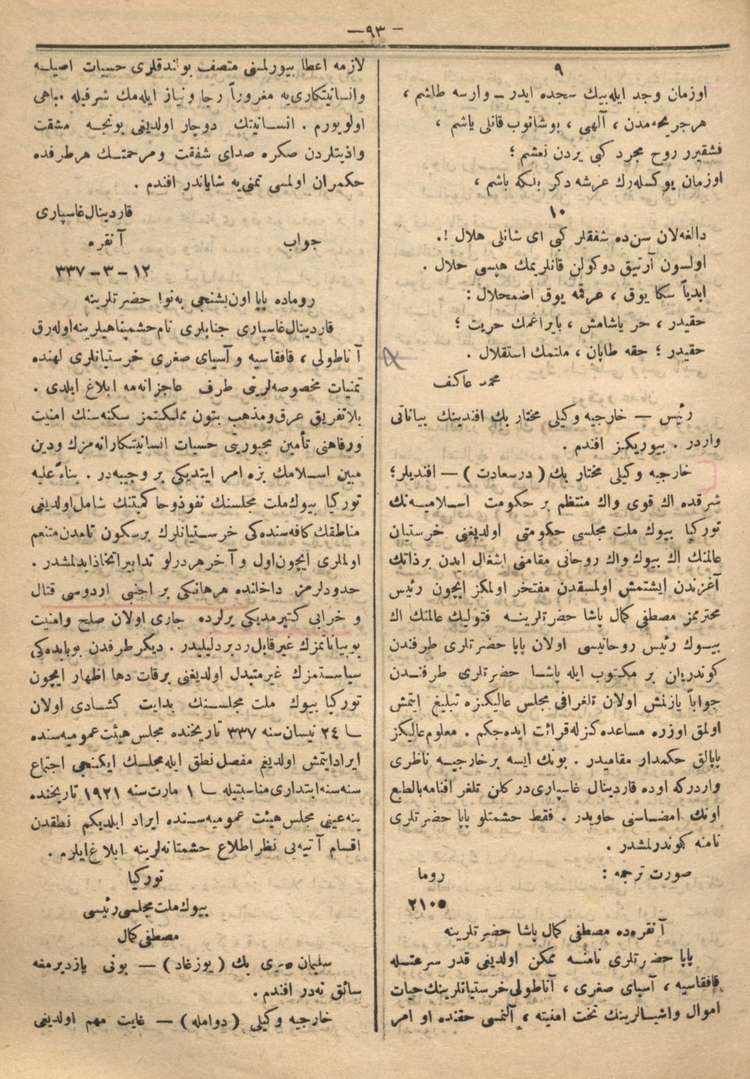 — ٩٣ —
٩
اوزمان وجد ايله بيك سجده ايدر — وارسه طاشم ،
هر جريحه‌مدن ، آلهى ، بوشانوب قانلى ياشم ،
فشقيرر روح مجرد كبى يردن نعشم ؛
اوزمان يوكسله‌رك عرشه دكر بلكه باشم ،
١٠
دالغه‌لان سن‌ده شفقلر كبى اى شانلى هلال !.
اولسون آرتيق دوكولن قانلريمك هپسى حلال .
ابدياً سكا يوق ، عرقمه يوق اضمحلال :
حقيدر ، حر ياشامش ، بايراغمك حريت ؛
حقيدر ؛ حقه طاپان ، ملتمك استقلال .
محمد عاكف
رئيس — خارجيه وكيلى مختار بك افندينك بياناتى
واردر . بيوريكز افندم .
خارجيه وكيلى مختار بك ( درسعادت ) — افنديلر ؛
شرقده اك قوى واك منتظم بر حكومت اسلاميه‌نك
توركيا بيوك ملت مجلسى حكومتى اولديغنى خرستيان
عالمنك اك بيوك واك روحانى مقامنى اشغال ايدن بر ذاتك
آغزندن ايشتمش اولمسقدن مفتخر اولمكز ايچون رئيس
محترمز مصطفى كمال پاشا حضرتلرينه قتوليك عالمنك اك
بيوك رئيس روحانيسى اولان پاپا حضرتلرى طرفندن
كوندريلن بر مكتوب ايله پاشا حضرتلرى طرفندن
جواباً يازلمش اولان تلغرافى مجلس عاليكزه تبليغ ايتمش
اولمق اوزره مساعده‌كزله قرائت ايده‌جكم . معلوم عاليكز
پاپالق حكمدار مقاميدر . بونك ايسه بر خارجيه ناظرى
واردركه اوده قاردينال غاسپارى‌در كلن تلغرافنامه بالطبع
اونك امضاسنى حاويدر . فقط حشمتلو پاپا حضرتلرى
نامنه كوندرلمشدر .
صورت ترجمه : روما
٢١٠٥
آنقره‌ده مصطفى كمال پاشا حضرتلرينه
پاپا حضرتلرى نامنه ممكن اولديغى قدر سرعتله
قافقاسيه ، آسياى صغرى ، آناطولى خرستيانلرينك حيات
اموال واشيالرينك تحت امنيته ، آلنمسى حقنده او امر
لازمه اعطا بيورلمسنى متصف بولندقلرى حسيات اصيله
وانسانيتكارى‌يه مغروراً رجا ونياز ايله‌مك شرفيله مباهى
اولويورم . انسانيتك دوچار اولديغى بونجه مشقت
واذيتلردن صكره صداى شفقت ومرحمتك هر طرفده
حكمران اولمسى تمنى‌يه شاياندر افندم .
قاردينال غاسپارى
جواب آنقره
١٢-٣-٣٣٧
روماده پاپا اون بشنجى به‌نوا حضرتلرينه
قاردينال غاسپارى جنابلرى نام حشمتپناهيلرينه اوله‌رق
آناطولى ، قافقاسيه و آسياى صغرى خرستيانلرى لهنده
تمنيات مخصوصه‌لرينى طرف عاجزانه‌مه ابلاغ ايلدى .
بلا تفريق عرق ومذهب بتون مملكتمز سكنه‌سنك امنيت
ورفاهنى تأمين مجبوريتى حسيات انسانيتكارانه‌مزك ودين
مبين اسلامك بزه امر ايتديكى بر وجيبه‌در . بناءً عليه
توركيا بيوك ملت مجلسنك نفوذ وحاكميتنك شامل اولديغى
مناطقك كافه‌سنده‌كى خرستيانلرك بر سكون تامدن متنعم
اولملرى ايچون اول و آخر هر درلو تدابير اتخاذ ايدلمشدر .
حدودلرمز داخلنده هر هانكى بر اجنبى اردوسى قتال
و خرابى كتيرمديكى يرلرده جارى اولان صلح وامنيت
بو بياناتمزك غير قابل رد بر دليليدر . ديكر طرفدن بو بابده‌كى
سياستمزك غير متبدل اولديغنى بر قات دها اظهار ايچون
توركيا بيوك ملت مجلسنك بدايت كشادى اولان
٢٤ نيسان سنه ٣٣٧ تاريخنده مجلس هيئت عموميه‌سنده
ايراد ايتمش اولديغم مفصل نطق ايله مجلسك ايكنجى اجتماع
سنه‌سنه ابتدارى مناسبتيله ١ مارت سنه ١٩٢١ تاريخنده
ينه عينى مجلس هيئت عموميه‌سنده ايراد ايلديكم نطقدن
اقسام آتيه‌يى نظر اطلاع حشمتانه‌لرينه ابلاغ ايلرم .
توركيا
بيوك ملت مجلسى رئيسى
مصطفى كمال
سليمان سرى بك ( يوزغاد ) — بونى يازديرمغه
سائق نه‌در افندم .
خارجيه وكيلى ( دوامله ) — غايت مهم اولديغى